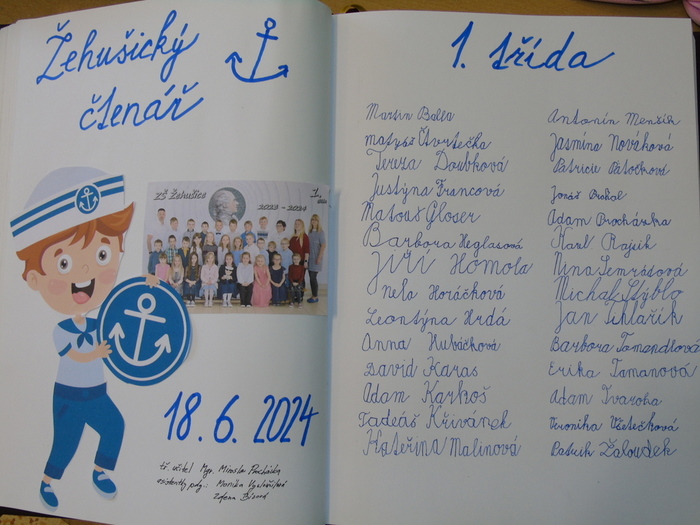 Žehušický
čtenář
ZŠ Žehušice
1.
2023 - 2024
18. 6. 2024
tř. učitel Mgr. Miroslav Procházka
asistentky ped.: Monika
Zdena
1. třída
Martin Balla
Matyáš Čtvrtečka
Tereza Doubková
Justýna Francová
Matouš Gloser
Barbora Heglasová
JIŘÍ Homola
Nela Horáčková
Leontýna Hrdá
Anna Hubáčková
David Karas
Adam Karhoš
Tadeáš Křivánek
Kateřina Malinová
Antonín Menšík
Jasmína Nováková
Patricie Patočková
Jonáš
Adam Procházka
Karel Rajsik
Nina Semrádová
Michal Stýblo
Jan Šklařík
Barbora Tomandlová
Erika Tumanová
Adam Tvaroha
Veronika Všetečková
Patrik Žaloudek